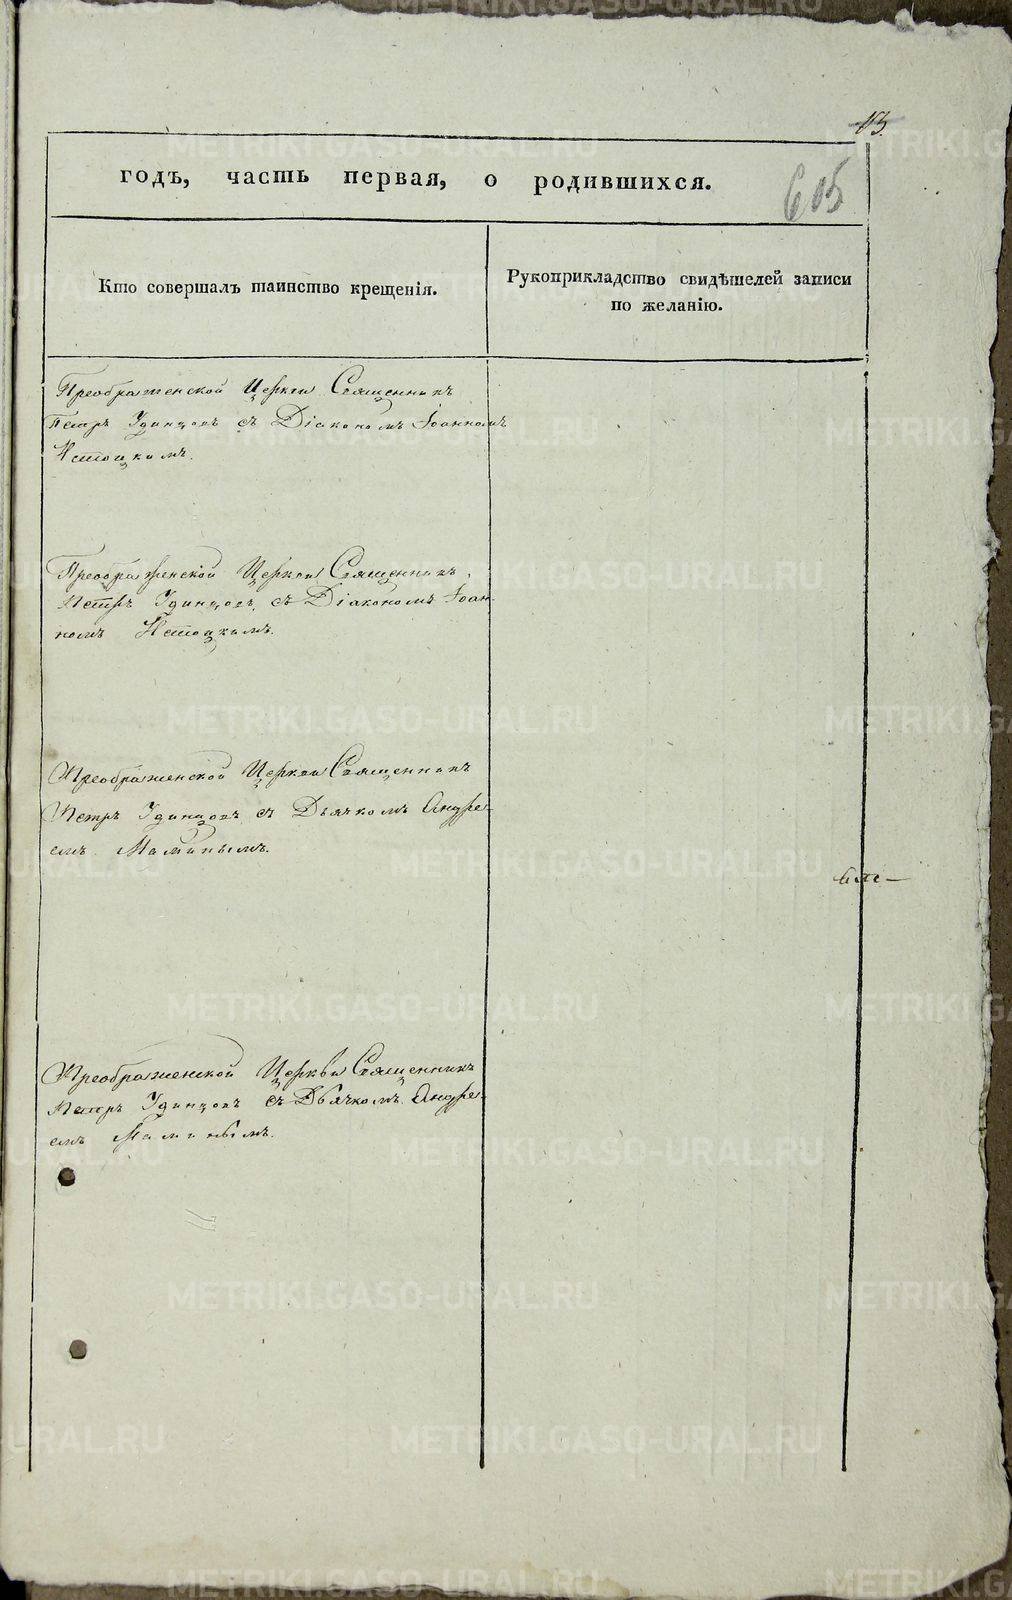 13.
годъ, часть первая, о родившихся.
605
Кто совершалъ таинство крещенія.
Рукоприкладство свидѣтелей записи
по желанію.
Преображенской Церкви Священникъ
Петръ Удинцовъ съ Діакономъ Іоанномъ
Истоцкимъ.
Преображенской Церкви Священникъ
Петръ Удинцовъ съ Діакономъ Іоан-
номъ Истоцкимъ.
Преображенской Церкви Священникъ
Петръ Удинцовъ съ Дьячкомъ Андре-
емъ Маминымъ.
Преображенской Церкви Священникъ
Петръ Удинцовъ съ Дьячкомъ Андре-
емъ Маминымъ.
METRIKI.GASO-URAL.RU